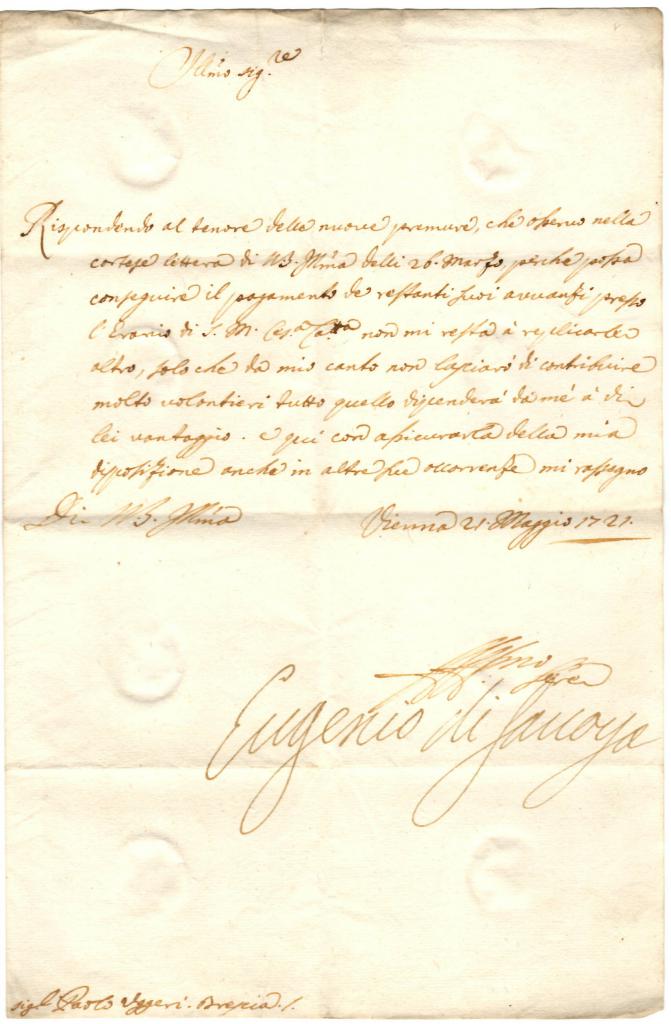 Illmo sig.re
Rispondendo al tenore delle nuove premure, che osservo nella
cortese lettera di VS. Illma delli 26. Marzo, perche possa
conseguire il pagamento de restanti suoi avvanzi presso
l'Erario di S. M. Ces.a Catt.a non mi resta à replicarle
altro, solo che da mio canto non lasciarò di contribuire
molto volontieri tutto quello dipenderà da mé à di
lei vantaggio. e qui con assicurarla della mia
disposizione anche in altre sue occorrenze mi rassegno
Di VS. Illma Vienna 21. Maggio 1721.
Affmo
Eugenio di Savoya
sig.r Paolo Uggeri. Brescia